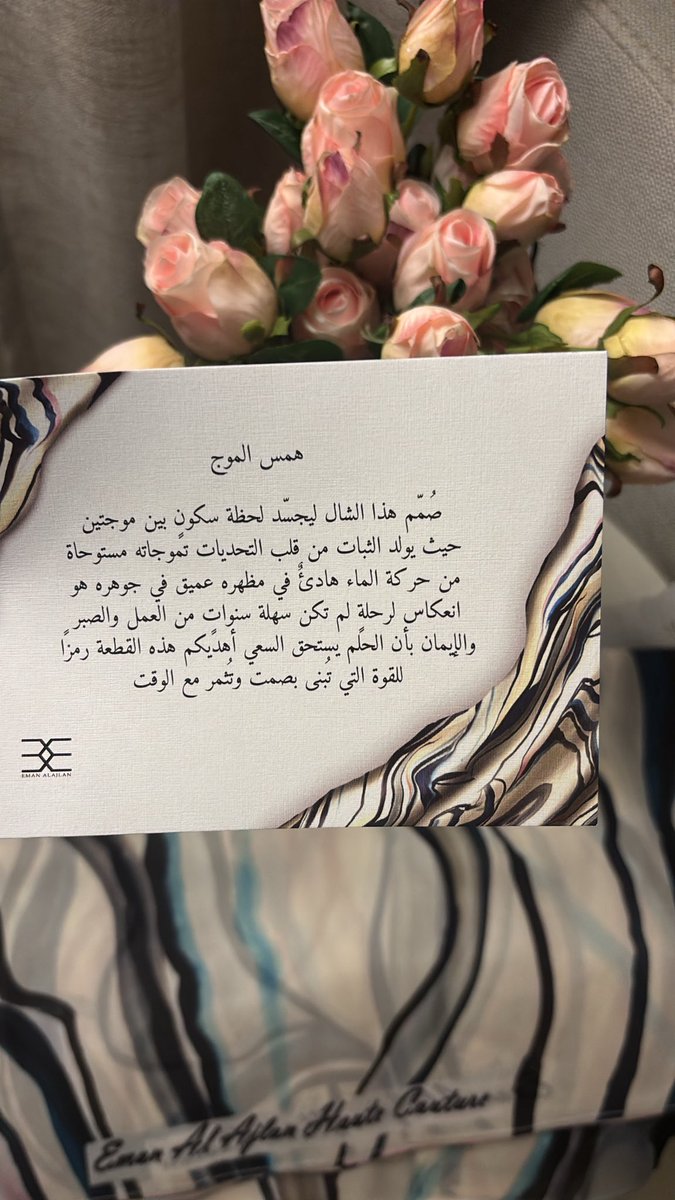 همس الموج
صُمّم هذا الشال ليجسّد لحظة سكونٍ بين موجتين
حيث يولد الثبات من قلب التحديات تموجاته مستوحاة
من حركة الماء هادئٌ في مظهره عميق في جوهره هو
انعكاس لرحلةٍ لم تكن سهلة سنواتٍ من العمل والصبر
والإيمان بأن الحلم يستحق السعي أهديكم هذه القطعة رمزًا
للقوة التي تُبنى بصمت وتُثمر مع الوقت
EMAN ALAJLAN
Eman Al Ajlan Haute Couture